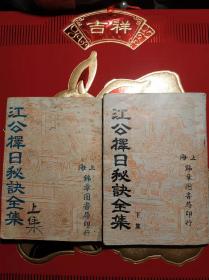 吉祥
江公擇日秘訣全集
上集
上海
錦章圖書局印行
江公擇日秘訣全集
下集
上海
錦章圖書局印行